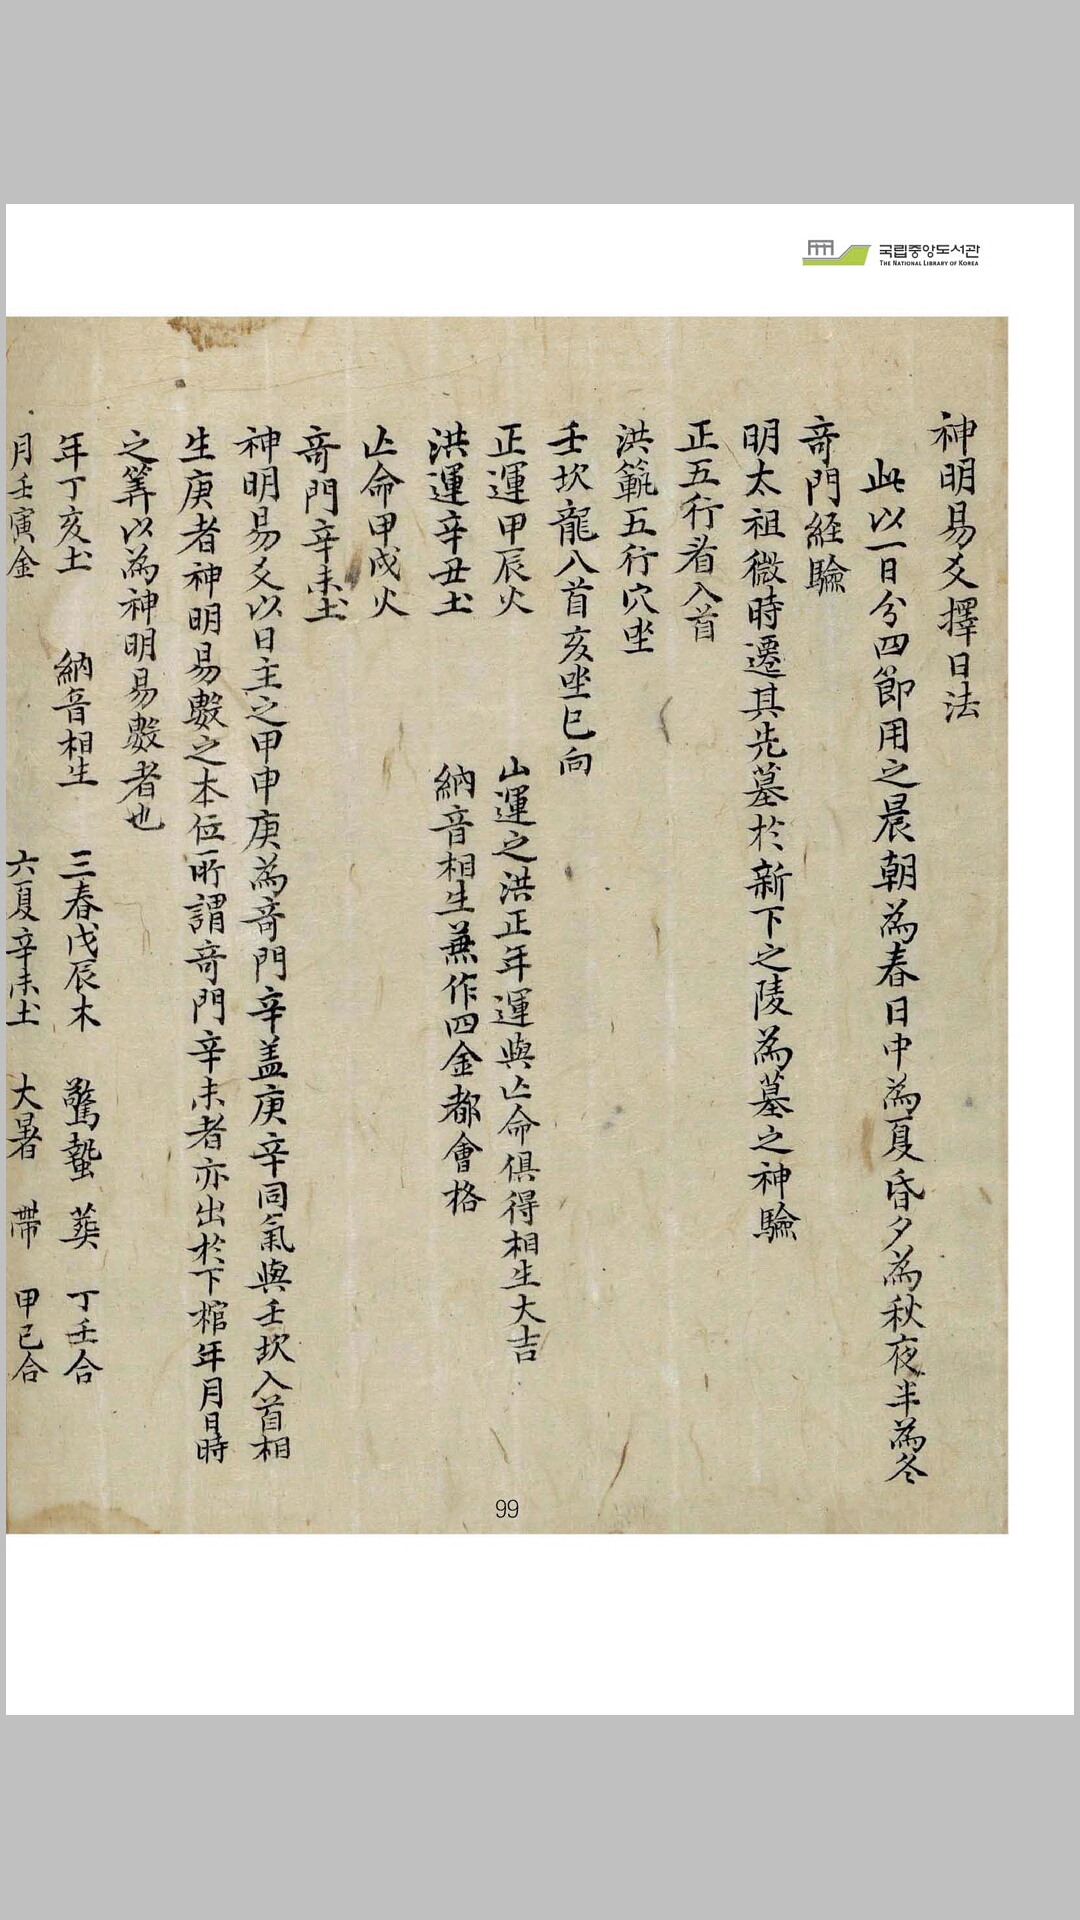 국립중앙도서관
THE NATIONAL LIBRARY OF KOREA
神明易爻擇日法
此以一日分四節用之晨朝為春日中為夏昏夕為秋夜半為冬
竒門経驗
明太祖微時遷其先墓於新下之陵為墓之神驗
正五行看入首
洪範五行穴坐
壬坎龍八首亥坐巳向
正運甲辰火 山運之洪正年運與亡命俱得相生大吉
洪運辛丑土 納音相生兼作四金都會格
亡命甲戌火
竒門辛未土
神明易爻以日主之甲申庚為竒門辛盖庚辛同氣與壬坎入首相
生庚者神明易數之本位所謂竒門辛未者亦出於下棺年月日時
之筭以為神明易數者也
年丁亥土 納音相生 三春戊辰木 驚蟄 葬 丁壬合
月壬寅金 六夏辛未土 大暑 帶 甲己合
99